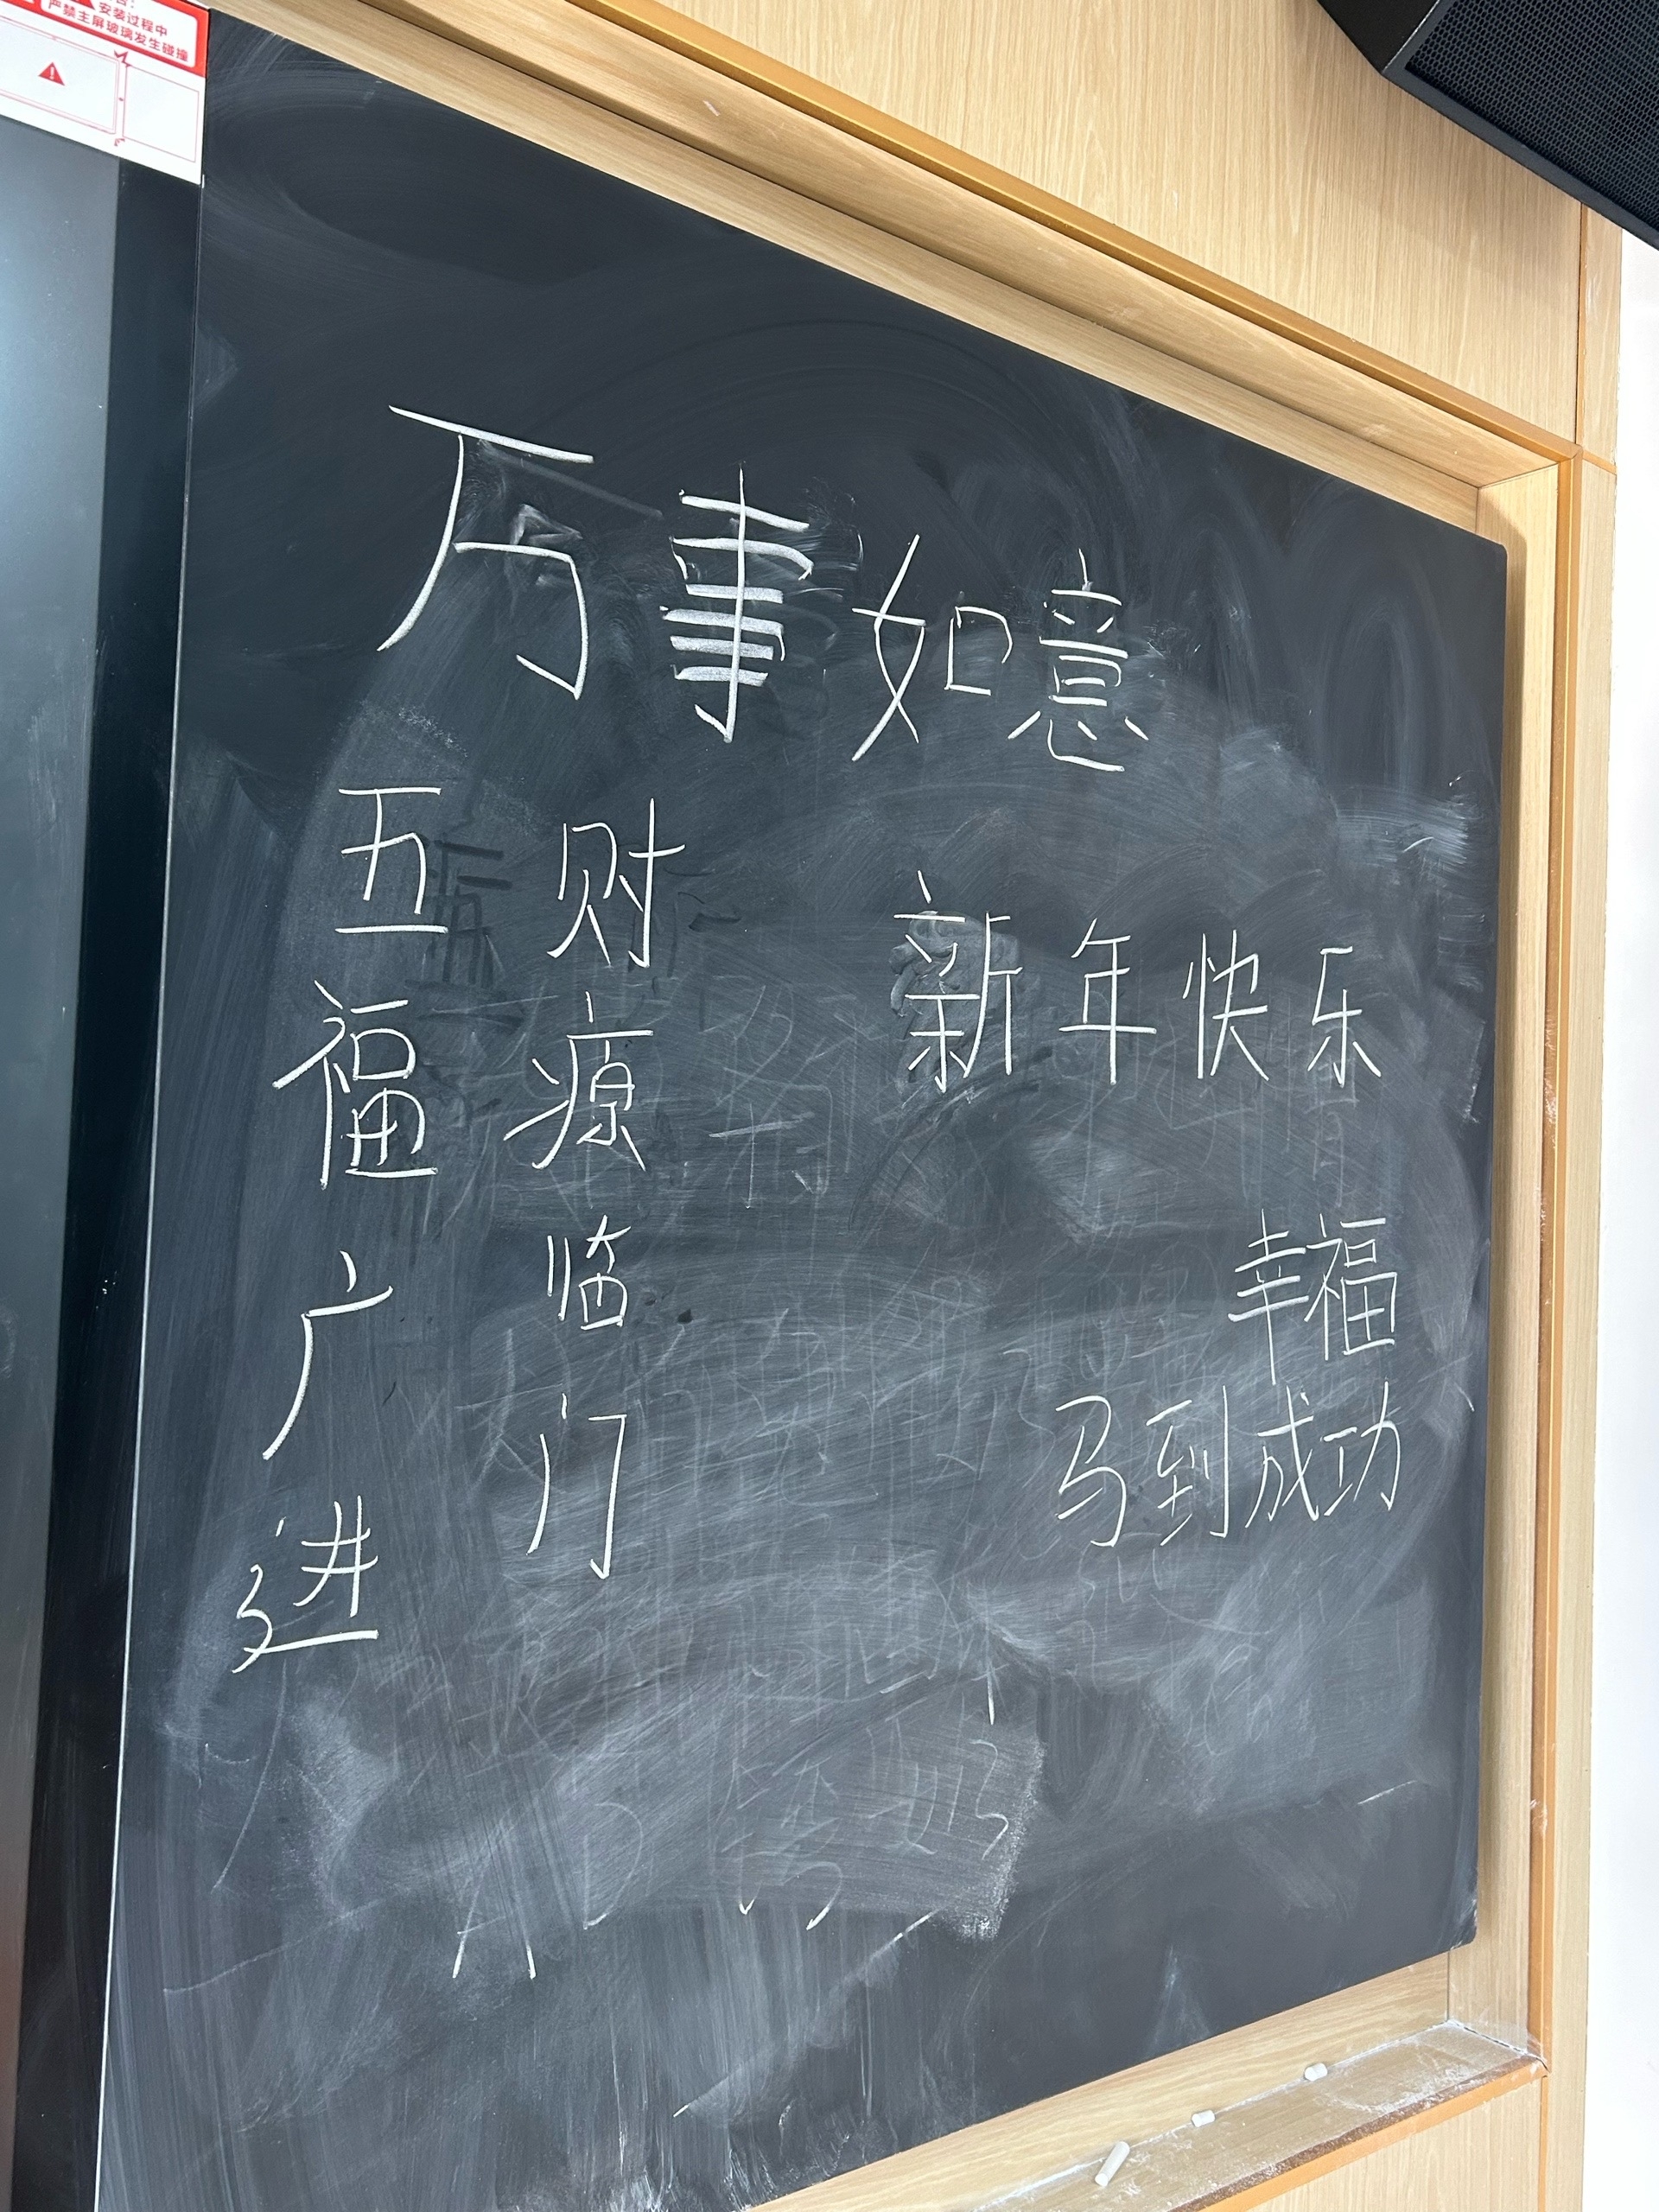 安装过程中
严禁主屏玻璃发生碰撞
万事如意
五福广进
财源临门
新年快乐
幸福
马到成功